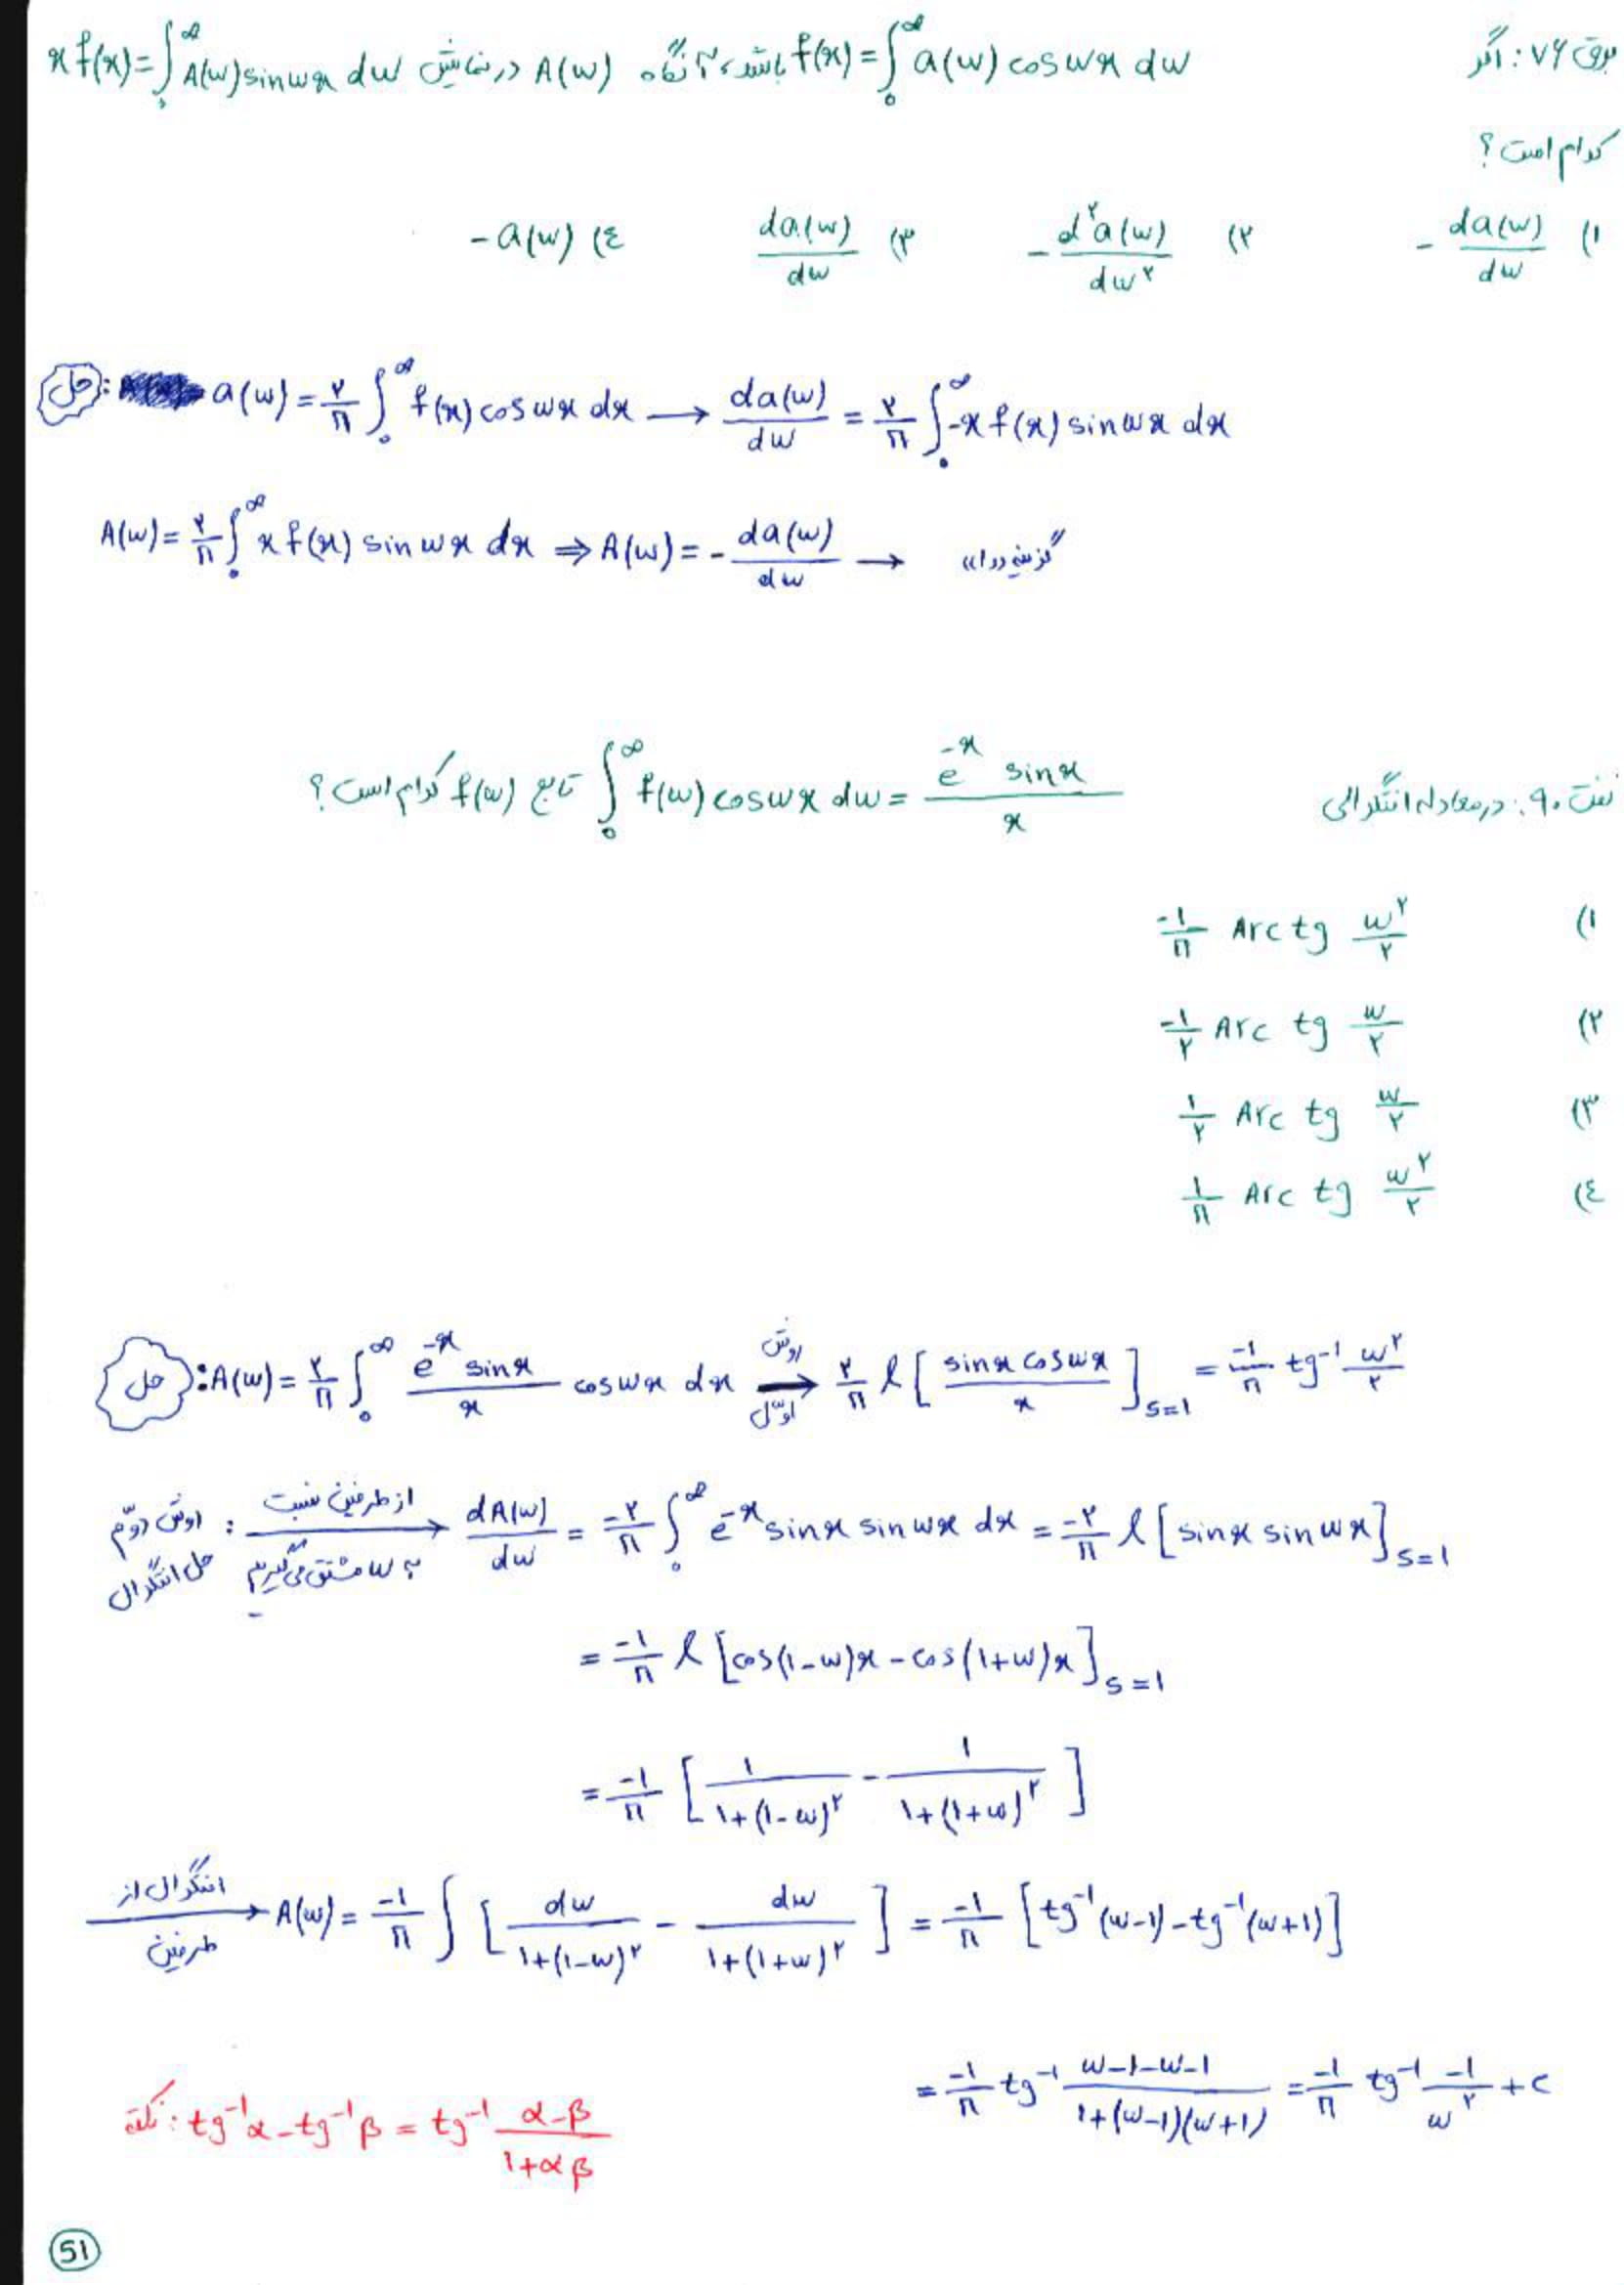 برق ۷۶: اگر f(x)=∫₀^∞ a(w) cos wx dw باشد، آنگاه A(w) در نمایش xf(x)=∫₀^∞ A(w) sin wx dw
کدام است؟
۱) -da(w)/dw ۲) -d²a(w)/dw² ۳) da(w)/dw ٤) -a(w)
حل: a(w)=۲/π ∫₀^∞ f(x) cos wx dx → da(w)/dw = ۲/π ∫₀^∞ -x f(x) sin wx dx
A(w)=۲/π ∫₀^∞ x f(x) sin wx dx ⇒ A(w)= -da(w)/dw → گزینه «۱»
نفت ۹۰: در معادله انتگرالی ∫₀^∞ f(w) cos wx dw = e^-x sin x / x تابع f(w) کدام است؟
۱) -۱/π Arc tg w²/۲
۲) -۱/۲ Arc tg w/۲
۳) ۱/۲ Arc tg w/۲
٤) ۱/π Arc tg w²/۲
حل: A(w)=۲/π ∫₀^∞ e^-x sin x / x cos wx dx → روش اول ۲/π ℓ[sin x cos wx / x]s=1 = -۱/π tg⁻¹ w²/۲
روش دوم حل انتگرال: از طرفین نسبت به w مشتق می‌گیریم → dA(w)/dw = -۲/π ∫₀^∞ e^-x sin x sin wx dx = -۲/π ℓ[sin x sin wx]s=1
= -۱/π ℓ[cos(1-w)x - cos(1+w)x]s=1
= -۱/π [1/(1+(1-w)²) - 1/(1+(1+w)²)]
انتگرال از طرفین → A(w)= -۱/π ∫[dw/(1+(1-w)²) - dw/(1+(1+w)²)] = -۱/π [tg⁻¹(w-1) - tg⁻¹(w+1)]
= -۱/π tg⁻¹ (w-1-w-1)/(1+(w-1)(w+1)) = -۱/π tg⁻¹ -1/w² + c
نکته: tg⁻¹α - tg⁻¹β = tg⁻¹ (α-β)/(1+αβ)
51